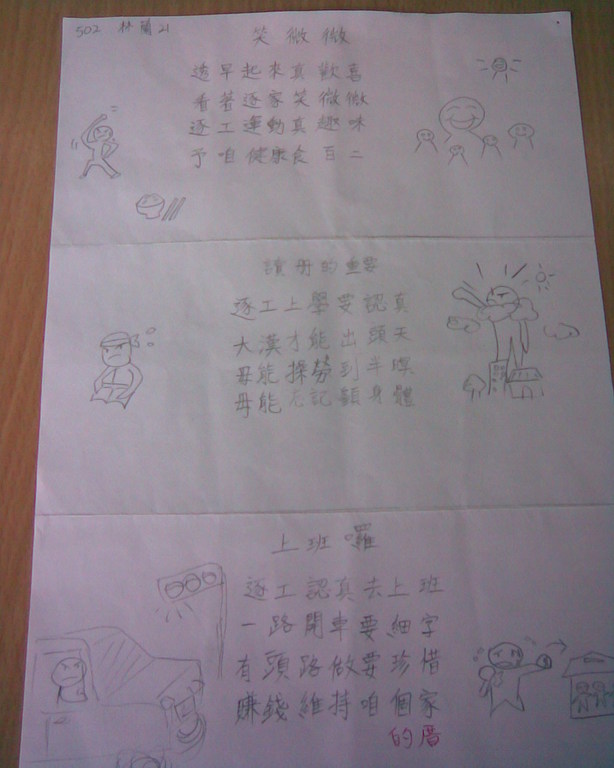 502 林蘭21
笑微微
透早起來真歡喜
看著逐家笑微微
逐工運動真趣味
予咱健康食百二
讀冊的重要
逐工上學要認真
大漢才能出頭天
毋能操勞到半暝
毋能忘記顧身體
上班囉
逐工認真去上班
一路開車要細字
有頭路做要珍惜
賺錢維持咱個家
的厝